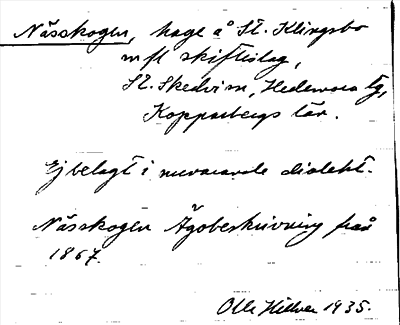 Nässkogen, hage å St. Klingsbo
m fl skifteslag,
St. Skedvi sn, Hedemora tg,
Kopparbergs län.
Ej belagt i nuvarande dialekt.
Nässkogen Ägobeskrivning från
1867.
Olle Hillver 1935.